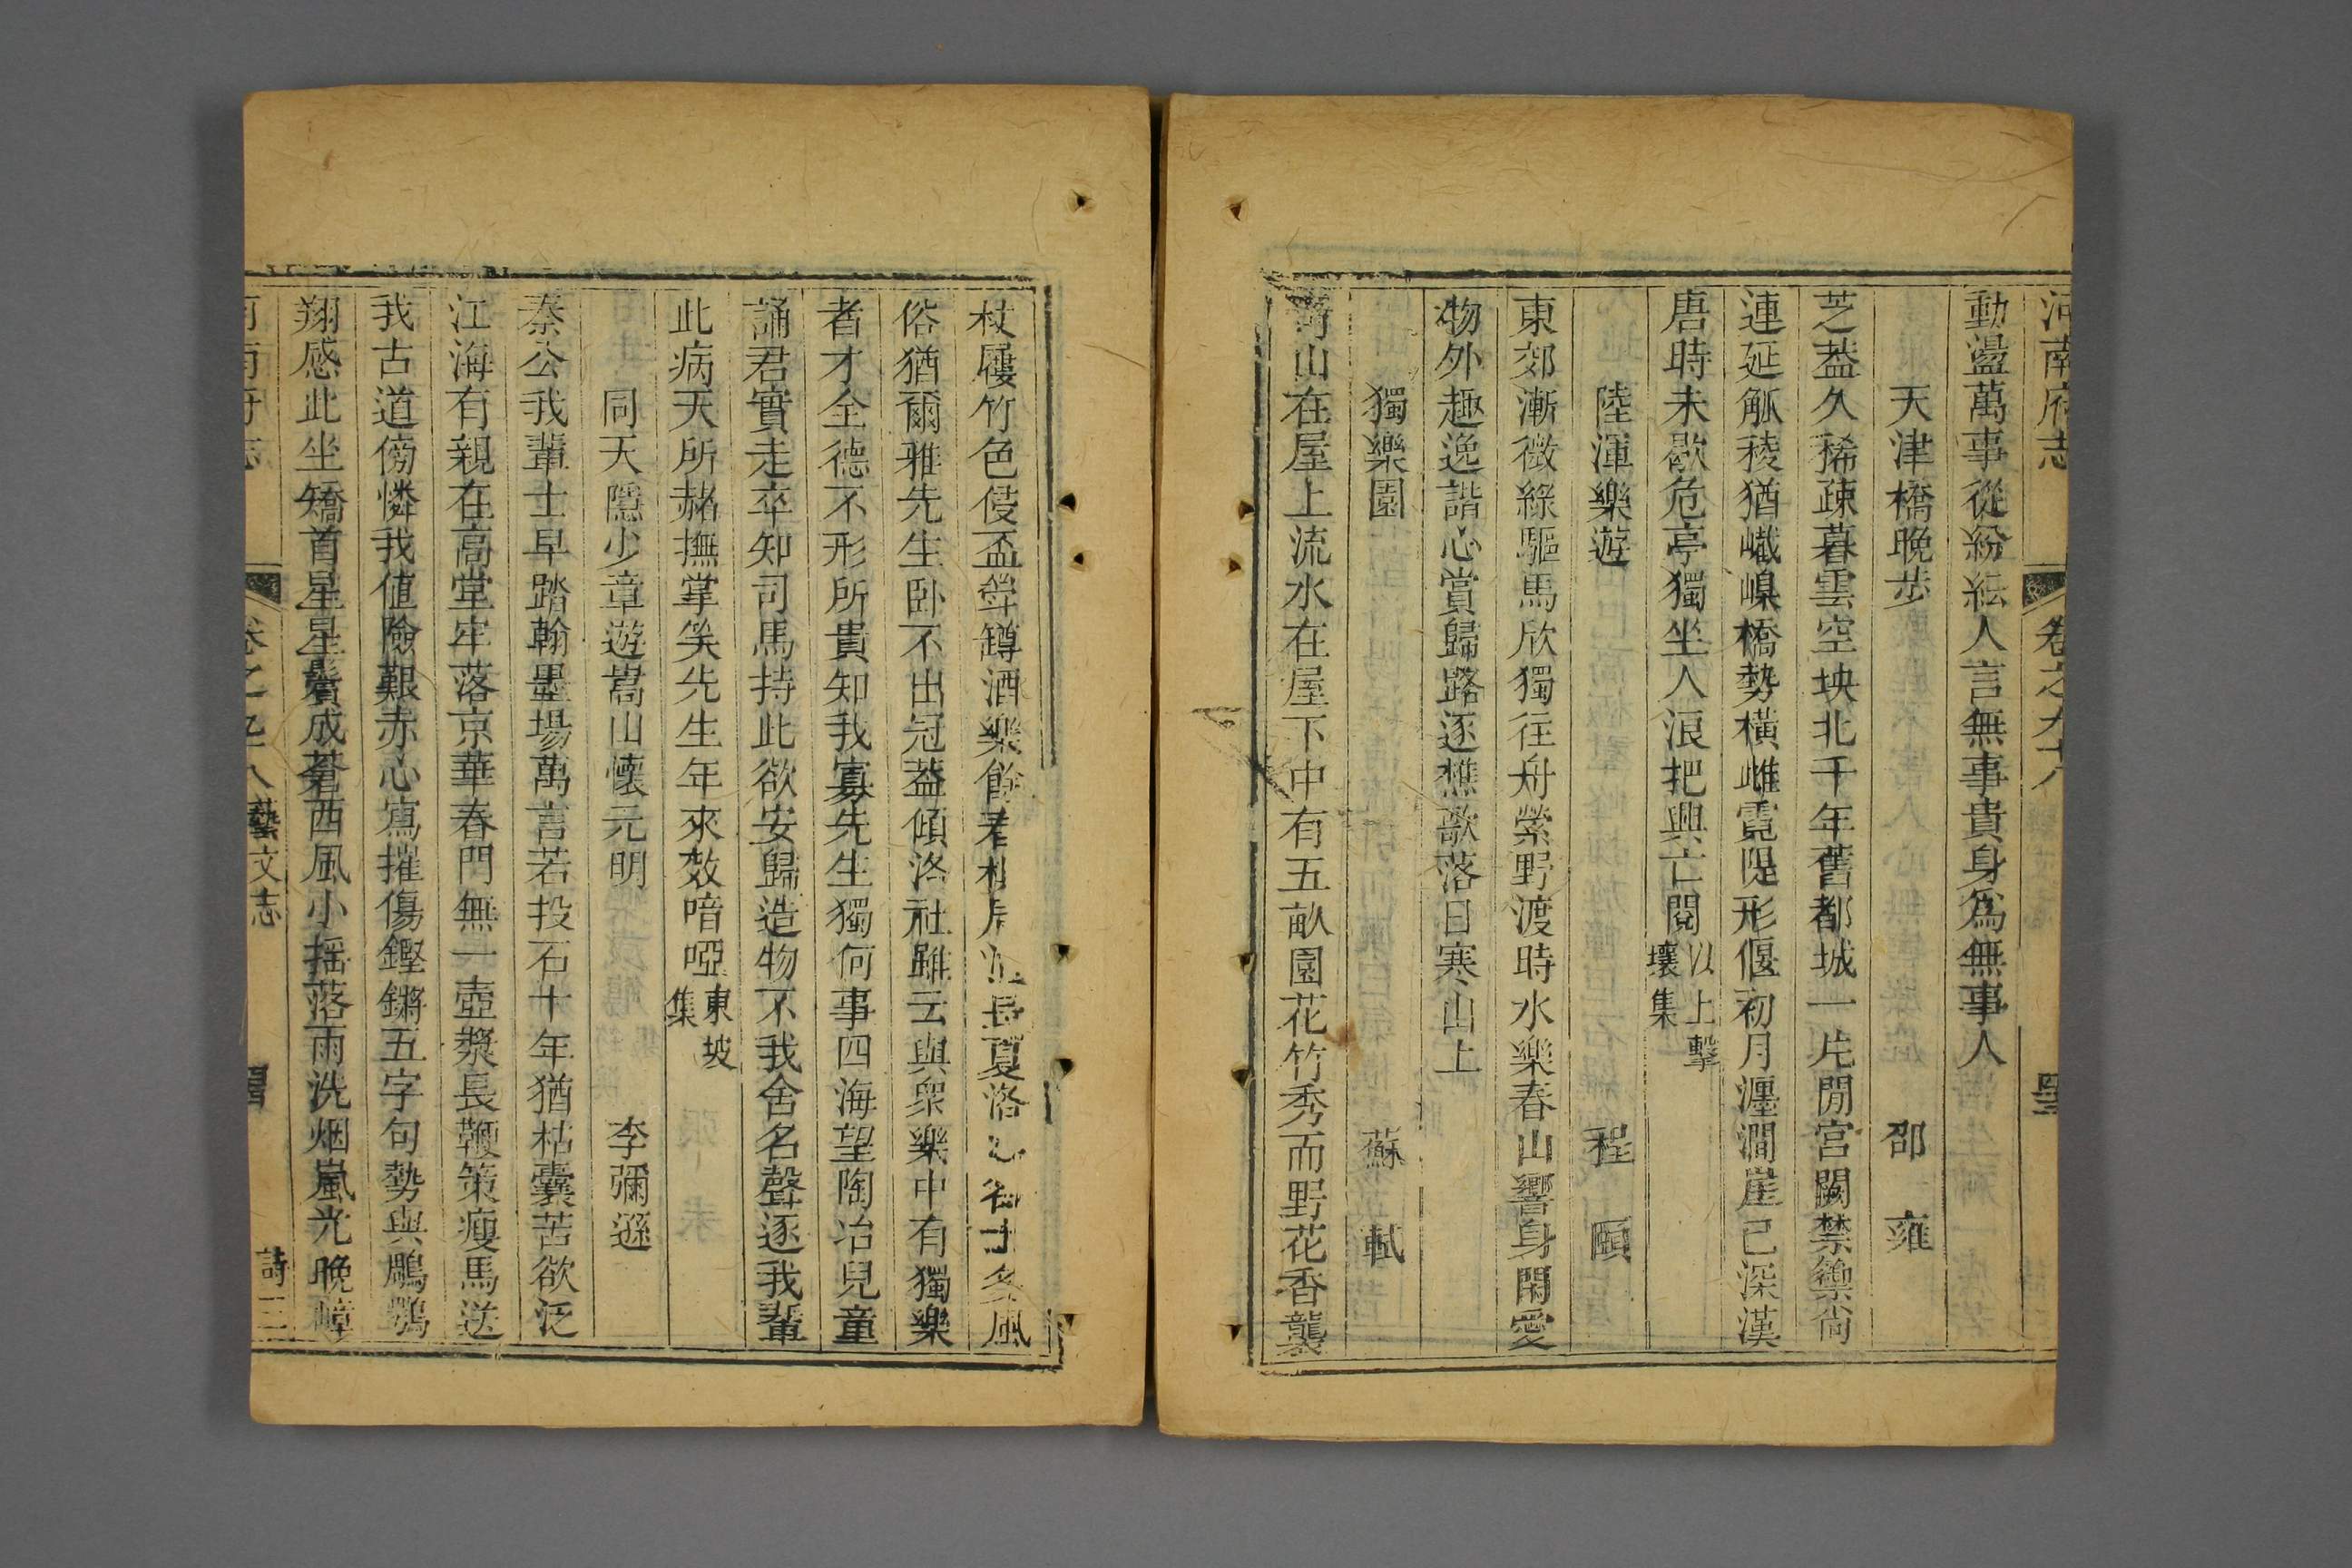 河南府志 卷之九十八
動盪萬事從紛紜人言無事貴身爲無事人
天津橋晚步 邵雍
芝葢久稀疎暮雲空坱北千年舊都城一片閒宫闕禁籞尙
連延觚稜猶嶬嵲橋勢橫雌霓隄形偃初月瀍澗崖已深漢
唐時未歇危亭獨坐人浪把興亡閱以上擊壤集
陸渾樂遊 程頤
東郊漸微綠驅馬欣獨往舟縈野渡時水樂春山響身閑愛
物外趣逸諧心賞歸路逐樵歌落日寒山上
獨樂園 蘇軾
靑山在屋上流水在屋下中有五畝園花竹秀而野花香襲
杖屨竹色侵盃斝罇酒樂餘春棋局消長夏洛 多風
俗猶爾雅先生卧不出冠葢傾洛社雖云與衆樂中有獨樂
者才全德不形所貴知我寡先生獨何事四海望陶冶兒童
誦君實走卒知司馬持此欲安歸造物不我舍名聲逐我輩
此病天所赭撫掌笑先生年來效喑啞東坡集
同天隱少章遊嵩山懷元明 李彌遜
秦公我輩士早踏翰墨場萬言若投石十年猶枯囊苦欲泛
江海有親在高堂牢落京華春門無一壺漿長鞭策瘦馬送
我古道傍憐我値險艱赤心寫摧傷鏗鏘五字句勢與鵰鶚
翔感此坐矯首星星鬢成蒼西風小揺落雨洗烟嵐光晚嶂
河南府志 卷之九十八 藝文志 詩三